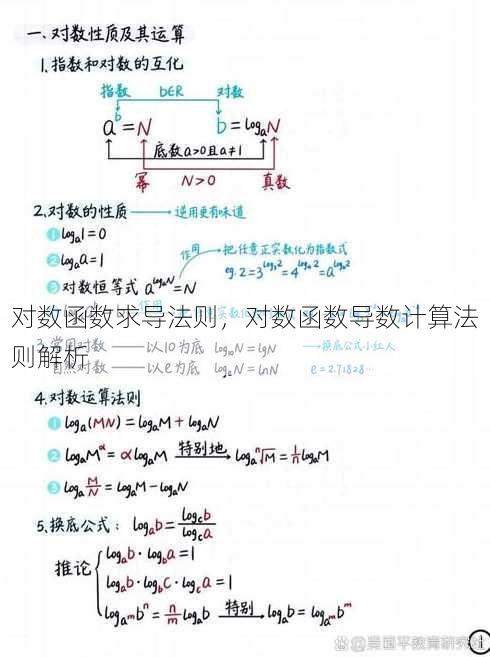 一、对数性质及其运算
1.指数和对数的互化
指数 b∈R 对数
a^b=N b=log_aN
底数a>0且a≠1
幂 N>0 真数
2.对数的性质——→逆用更有味道
①log_a1=0
②log_aa=1
作用→把任意正实数化为指数式
③对数恒等式 a^{log_aN}=N
eg.2=3^{log_32}=4^{log_42}=a^{log_a2}
作用
对数函数求导法则，对数函数导数计算法
则解析
3.常用对数——以10为底 log_{10}N=lgN →换底公式小红人
自然对数——以e为底 log_eN=lnN e=2.71828…
4.对数运算法则
①log_a(MN)=log_aM+log_aN
②log_aM^α=αlog_aM 特别地→ log_a\sqrt[n]{M}=\frac{1}{n}log_aM
③log_a\frac{M}{N}=log_aM-log_aN
5.换底公式：log_ab=\frac{log_cb}{log_ca}
推论
log_ab·log_ba=1
log_ab·log_bc·log_ca=1
log_{a^m}b^n=\frac{n}{m}log_ab 特别→ log_ab=log_{a^m}b^m